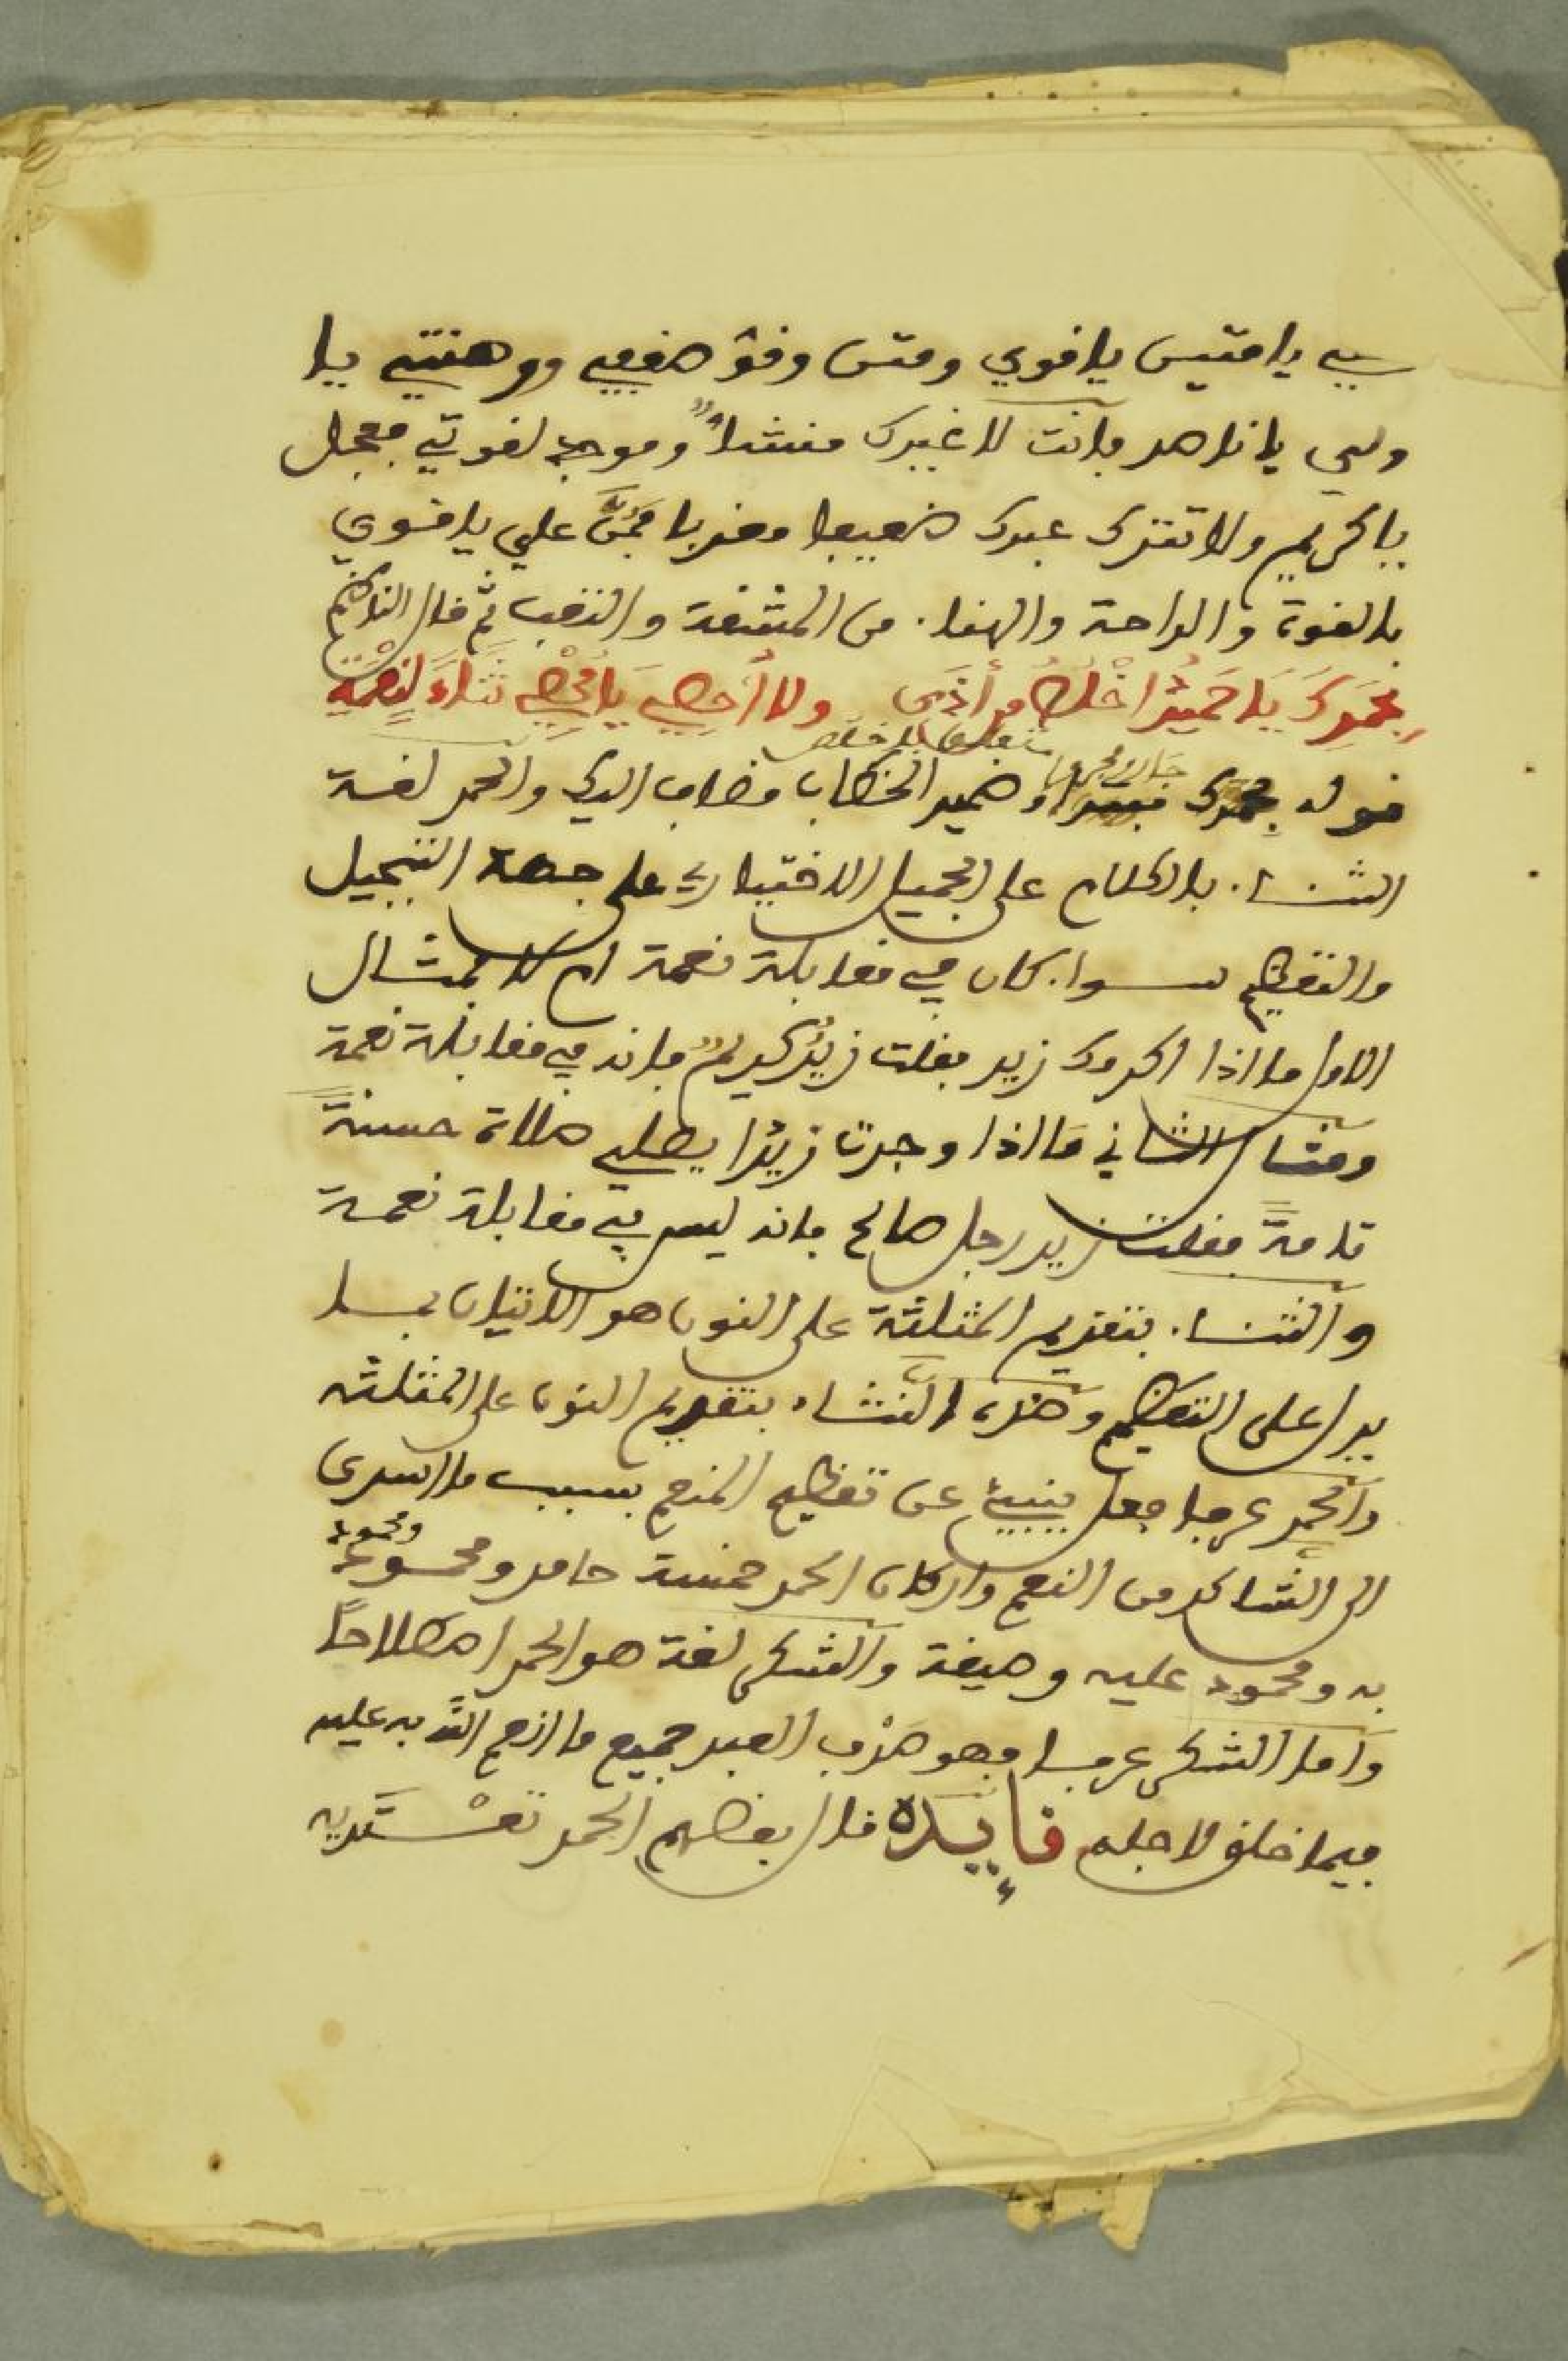 سي يا متين يا قوي ومتن وقو ضعفي ووهنتي يا
ولي يا ناصر فانت لا غيرك منشئا وموجد لقوتي فعجل
يا كريم ولا تترك عبدك ضعيفا فمن علي يا قوي
بالقوة والراحة والهناء من المشقة والتعب ثم قال الناظم
بحمدك يا حميدا ولا أحصي يا محصي ثناء
جار ومجرور متعلق بالاخلص
قوله بحمدك وضمير الخطاب مضاف اليك والحمد لغة
الثناء بالكلام على الجميل الاختياري على جهة التبجيل
والتعظيم سواء كان في مقابلة نعمة ام لا فمثال
الاول ما اذا اكرمك زيد فقلت زيد كريم فانه في مقابلة نعمة
ومثال الثاني ما اذا وجدت زيدا يصلي صلاة حسنة
تامة فقلت زيد رجل صالح فانه ليس في مقابلة نعمة
والثناء بتقديم المثلثة على النون هو الاتيان بما
يدل على التعظيم وضده النثاء بتقديم النون على المثلثه
والحمد عرفا فعل ينبئ عن تعظيم المنعم بسبب ما اسدى
الى الشاكر من النعم واركان الحمد خمسة حامد ومحمود
به ومحمود عليه وصيغة والشكر لغة هو الحمد اصطلاحا
واما الشكر عرفا فهو صرف العبد جميع ما انعم الله به عليه
فيما خلق لاجله فائيده قال بعضهم الحمد تعتريه